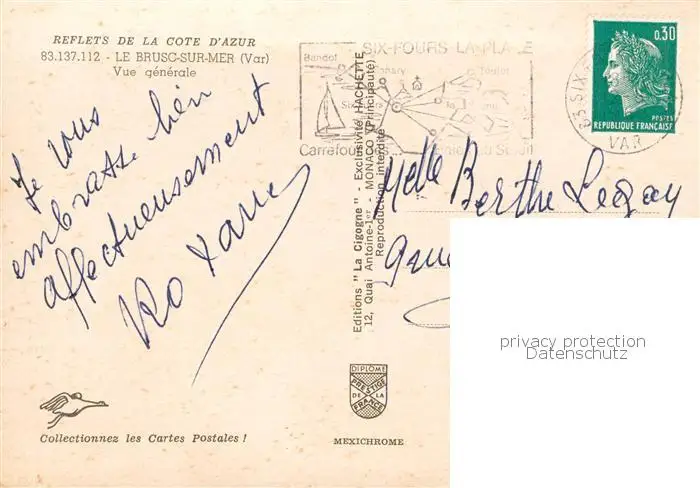 REFLETS DE LA COTE D'AZUR
83.137.112 - LE BRUSC-SUR-MER (Var)
Vue générale
Je vous
embrasse bien
affectueusement
Collectionnez les Cartes Postales !
Editions "La Cigogne" - Exclusivité HACHETTE
12, Quai Antoine-1er - MONACO (Principauté)
Reproduction interdite
DIPLOME
PRESTIGE
DE LA
FRANCE
MEXICHROME
SIX-FOURS LA PLAGE
Bandol
Sanary
Toulon
Carrefour des
du Soleil
0,30
POSTES
REPUBLIQUE FRANÇAISE
83 SIX
VAR
Melle Berthe
privacy protection
Datenschutz